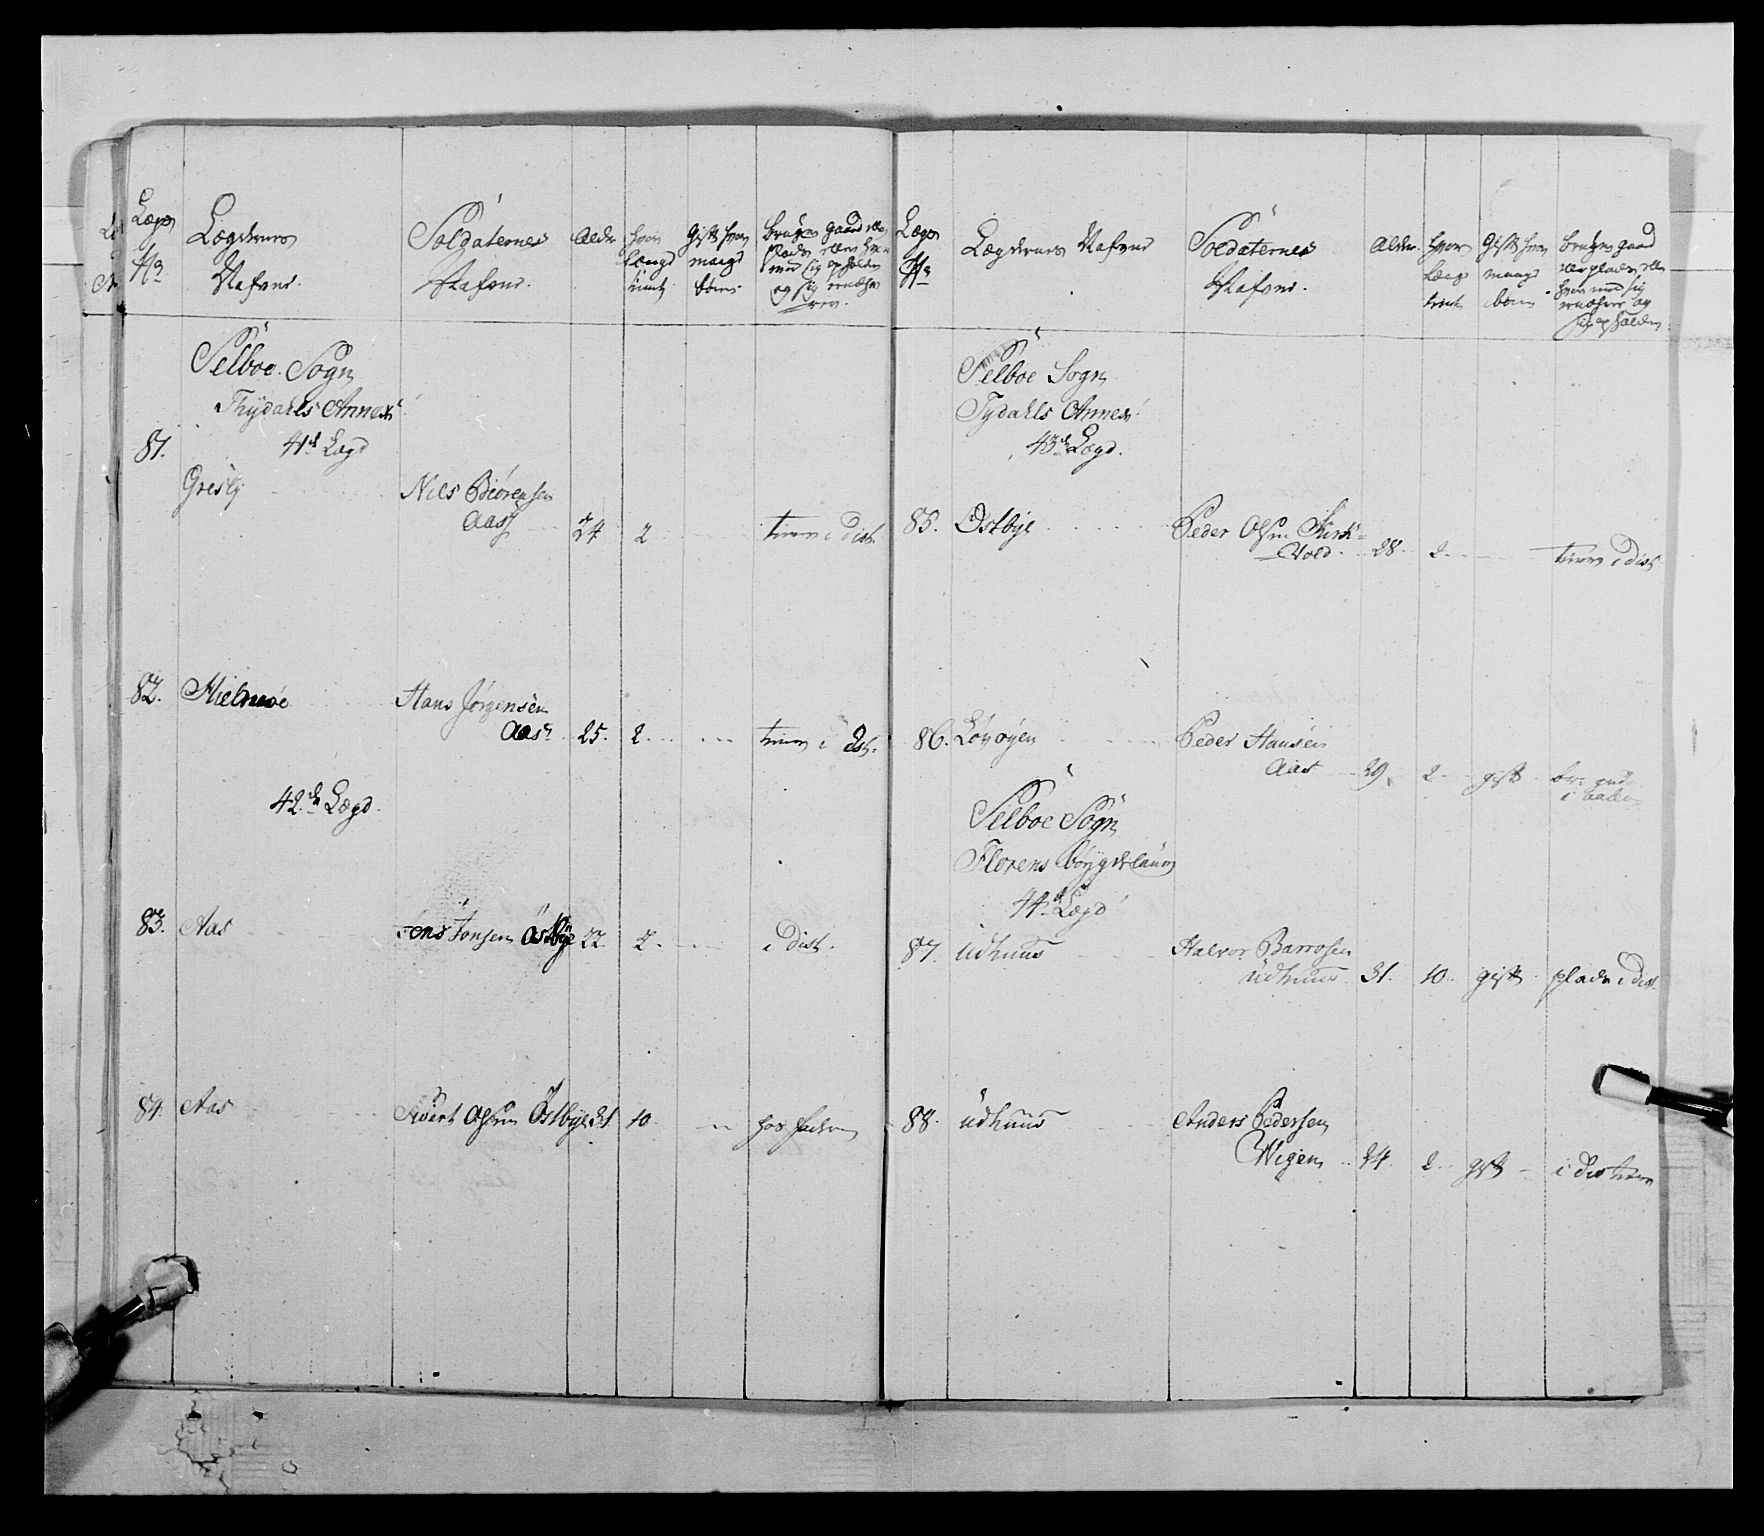 Lægs
No
Lægdernes
Nafvne.
Soldaternes
Nafvne.
Alder
hvor
længe
tient
Gift hvor
mange
børn
bruger gaard eller
plads eller hvor
med sig opholder
og sig ernærer
Selboe Sogn
Thydahls Annex
81.
41de Lægd
Gresly
Nils Biörensen
Aas 24 2 tiener i dist.
82. Hans Jörgensen
Aas 25. 2 tiener i dist.
42de Lægd.
83. Aas Jens Jonsen Östbye 22 2 i dist.
84. Aas Sivert Olsen Östbye 31 10 hos faderen
Lægs
No
Lægdernes Nafvne
Soldaternes
Nafvne.
Alder.
hvor
længe
tient
Gift hvor
mange
børn
bruger gaard
eller plads eller
hvor med sig
ernærer og
sig opholder
Selboe Sogn
Tydahls Annex
43de Lægd.
85. Östbye Peder Olsen Kirk-
Vold 28. 2 tiener i dist
86. Løvøyen Peder Hansen
Aas 29 2 gift
Selboe Sogn
Florens bøygdelaug
44de Lægd
87. Udhuus Halvor Barrosen
Udhuus 31. 10. gift plads i dist.
88. Udhuus Anders Pedersen
Wigen 34. 2 gift i dist